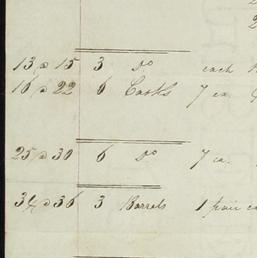 13 @ 15 3 Do each
16 @ 22 6 Casks 7 ea
25 @ 30 6 Do 7 ea.
34 @ 36 3 Barrels 1 pair ea